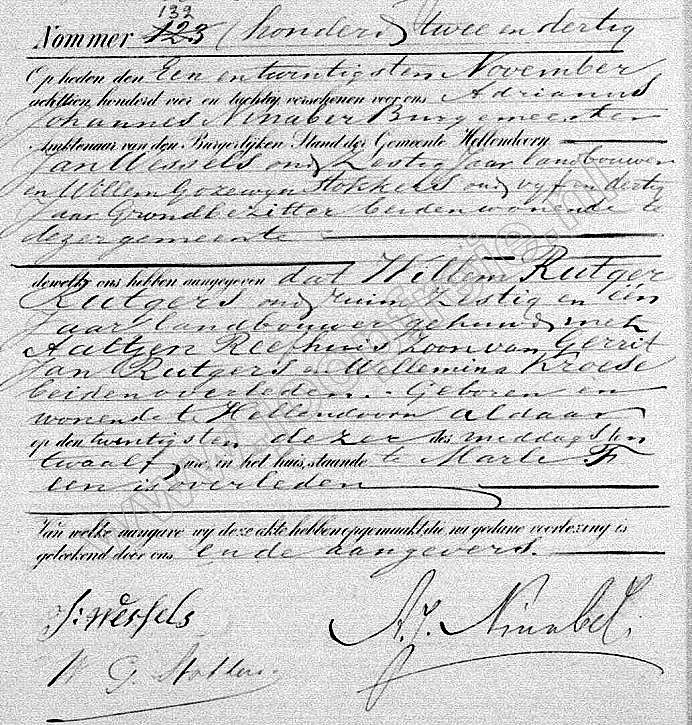 132
Nommer 123 (honderd twee en dertig
Op heden den Een en twintigsten November
achttien honderd vier en tachtig, verschenen voor ons Adrianus
Johannes Ninaber Burgemeester
Ambtenaar van den Burgerlijken Stand der Gemeente Hellendoorn
Jan Wessels oud Zestig Jaar landbouwer
en Willem Gozewyn Stokkers oud vyf en dertig
Jaar Grondbezitter beiden wonende te
dezer gemeente
dewelke ons hebben aangegeven dat Willem Rutger
Rutgers oud ruim Zestig en één
Jaar landbouwer gehuwd met
Aaltjen Reefhuis Zoon van Gerrit
Jan Rutgers en Wellemina Kroese
beiden overleden. - Geboren en
wonende te Hellendoorn aldaar
op den twintigsten dezer des middags ten
twaalf ure, in het huis, staande te Marle F
een is overleden
Van welke aangave wij deze akte hebben opgemaakt die na gedane voorlezing is
geteekend door ons en de aangevers.
J: Wessels
A. J. Ninaber.
W G Stokkers.